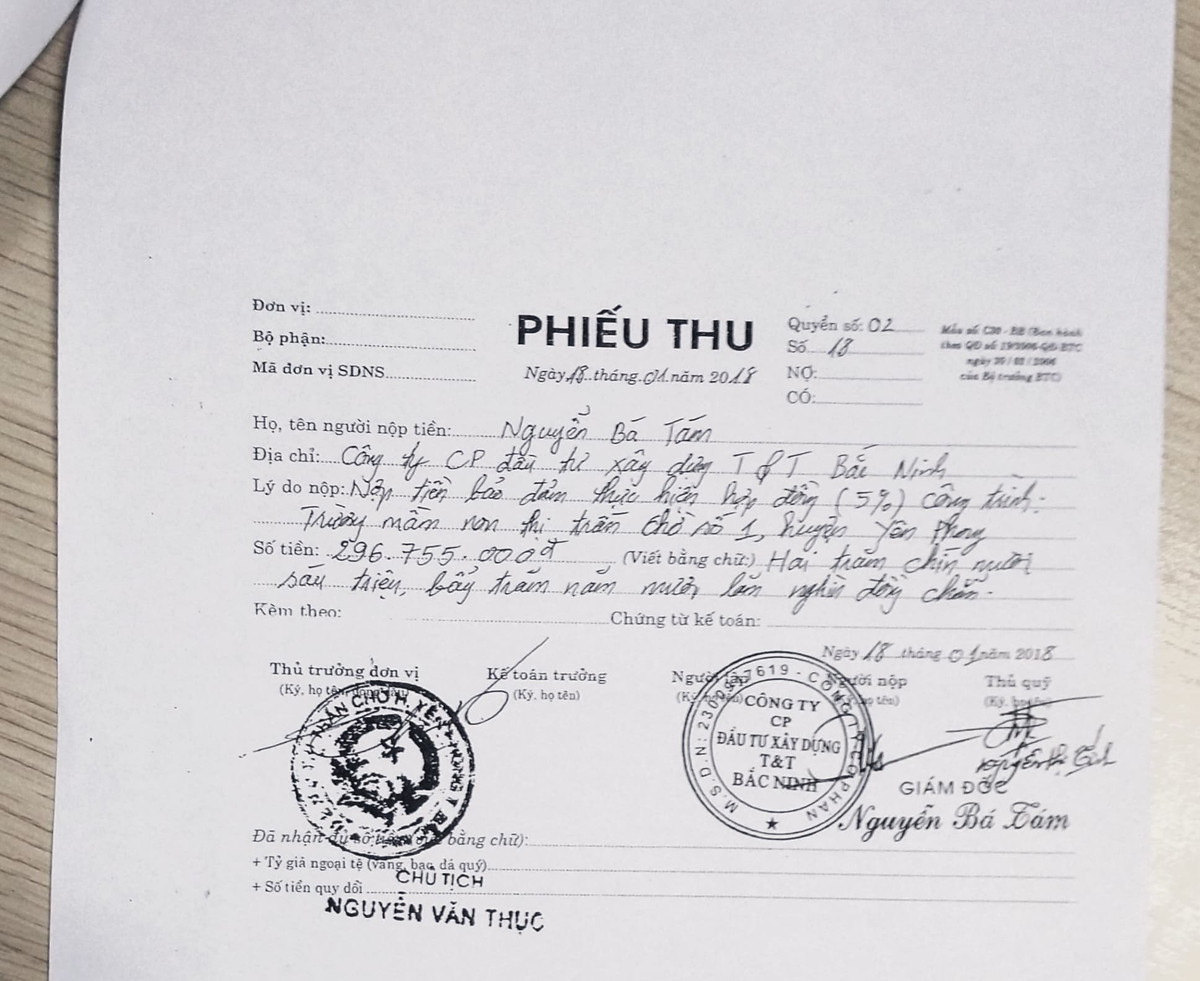 Đơn vị:
Bộ phận:
Mã đơn vị SDNS
PHIẾU THU
Ngày 18 tháng 01 năm 2018
Quyển số: 02
Số 18
NỢ:
CÓ:
Mẫu số C30 - BB (Ban hành
theo QĐ số 19/2006-QĐ-BTC
ngày 30 / 03 / 2006
của Bộ trưởng BTC)
Họ, tên người nộp tiền: Nguyễn Bá Tám
Địa chỉ: Công ty CP đầu tư xây dựng T&T Bắc Ninh
Lý do nộp: Nộp tiền bảo đảm thực hiện hợp đồng (5%) công trình:
Trường mầm non thị trấn Chờ số 1, huyện Yên Phong
Số tiền: 296.755.000đ (Viết bằng chữ:) Hai trăm chín mươi
sáu triệu, bẩy trăm năm mươi lăm nghìn đồng chẵn.
Kèm theo: Chứng từ kế toán:
Ngày 18 tháng 01 năm 2018
Thủ trưởng đơn vị Kế toán trưởng Người lập Người nộp Thủ quỹ
(Ký, họ tên, (Ký, họ tên) (Ký, họ tên) (Ký, họ tên) (Ký, họ tên)
TRẤN CHỜ H. YÊN PHONG T.
CÔNG TY
CP
ĐẦU TƯ XÂY DỰNG
T&T
BẮC NINH
GIÁM ĐỐC
Nguyễn Bá Tám
Đã nhận đủ số tiền bằng chữ):
+ Tỷ giá ngoại tệ (vàng, bạc, đá quý)
CHỦ TỊCH
+ Số tiền quy đổi
NGUYỄN VĂN THỤC